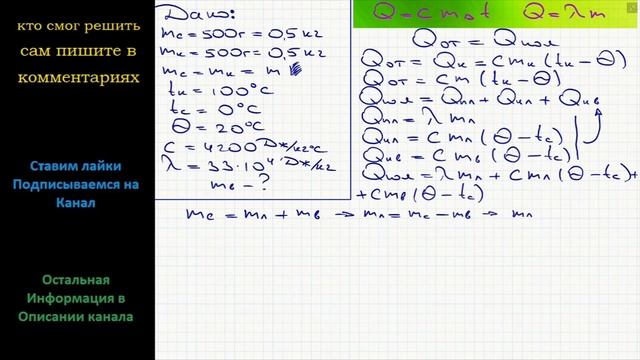 кто смог решить
сам пишите в
комментариях
Ставим лайки
Подписываемся на
Канал
Остальная
Информация в
Описании канала
Дано:
mс = 500г = 0,5 кг
mк = 500г = 0,5 кг
mс = mк = m
tк = 100°C
tс = 0°C
θ = 20°C
c = 4200 Дж/кг°C
λ = 33·10⁴ Дж/кг
mв - ?
Q = cmΔt Q = λm
Qот = Qпол
Qот = Qк = cmк(tк − θ)
Qот = cm(tк − θ)
Qпол = Qпл + Qнл + Qнв
Qпл = λmл
Qнл = cmл(θ − tс)
Qнв = cmв(θ − tс)
Qпол = λmл + cmл(θ − tс) +
+ cmв(θ − tс)
mс = mл + mв → mл = mс − mв → mл